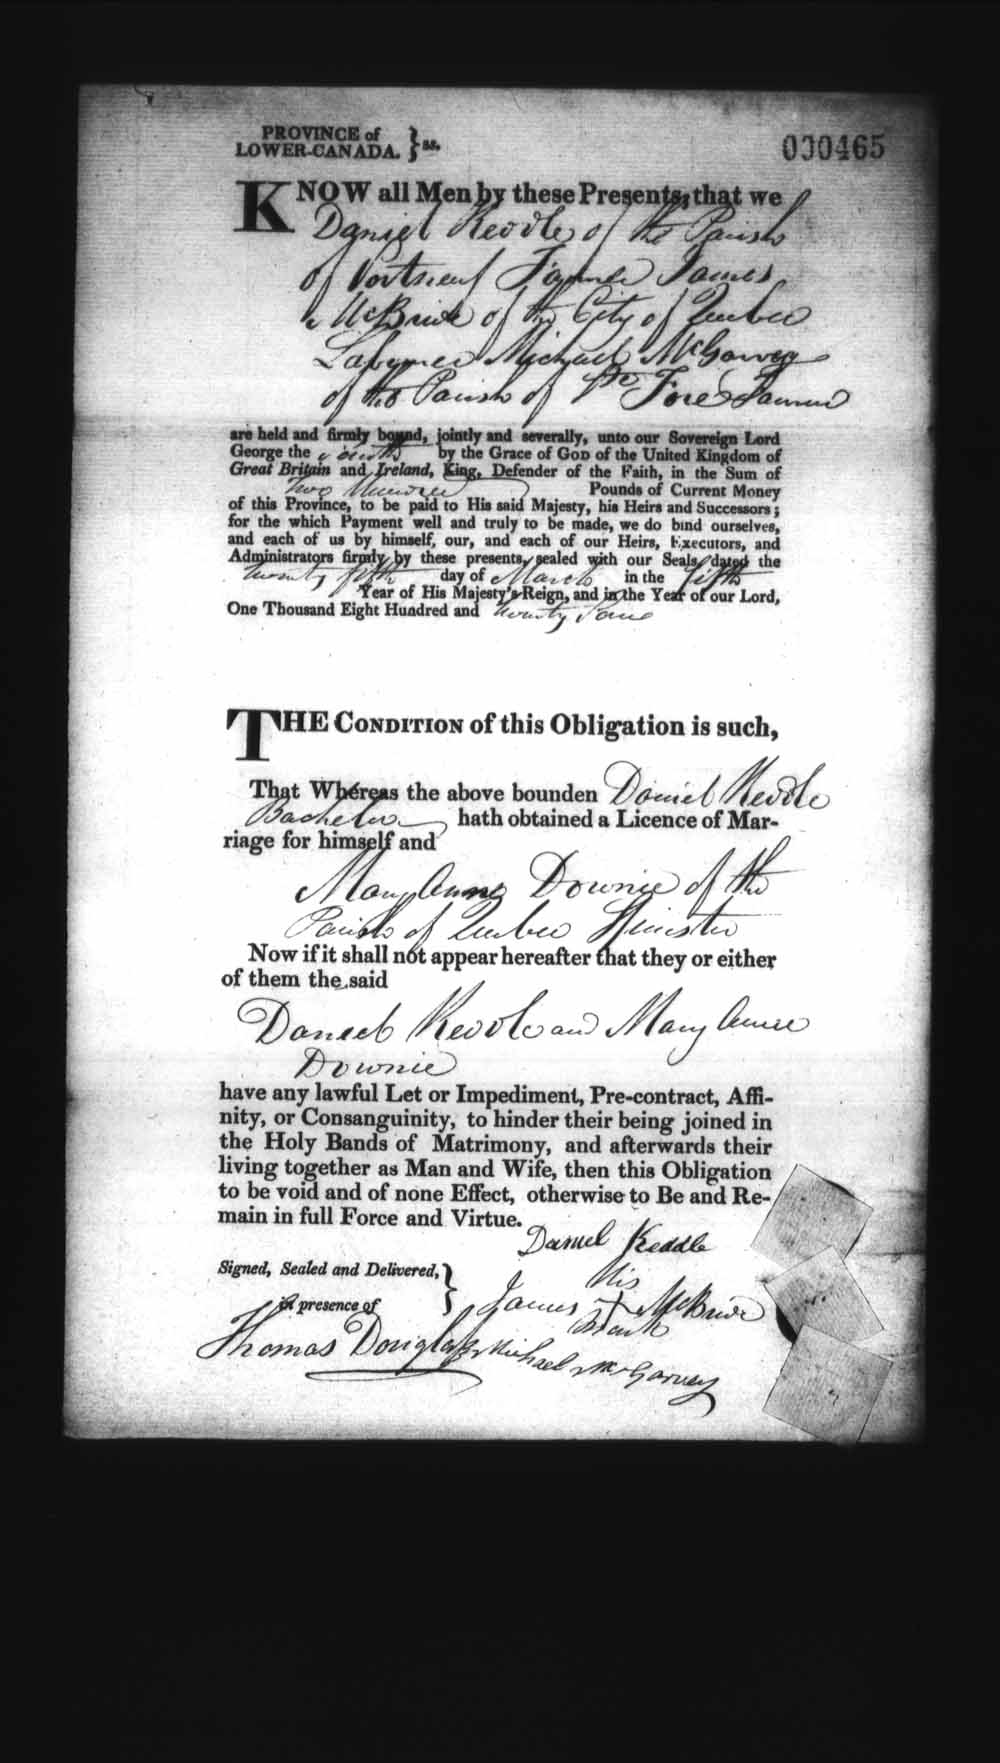 PROVINCE of
LOWER-CANADA. } ss.
000465
KNOW all Men by these Presents, that we
Daniel Keddle of the Parish
of Portneuf Farmer James
McBride of the City of Quebec
Labourer Michael McGarvey
of the Parish of Ste Foie Farmer
are held and firmly bound, jointly and severally, unto our Sovereign Lord
George the Fourth by the Grace of GOD of the United Kingdom of
Great Britain and Ireland, King, Defender of the Faith, in the Sum of
Two Hundred Pounds of Current Money
of this Province, to be paid to His said Majesty, his Heirs and Successors;
for the which Payment well and truly to be made, we do bind ourselves,
and each of us by himself, our, and each of our Heirs, Executors, and
Administrators firmly by these presents, sealed with our Seals, dated the
twenty fifth day of March in the fifth
Year of His Majesty's Reign, and in the Year of our Lord,
One Thousand Eight Hundred and twenty Four
THE CONDITION of this Obligation is such,
That Whereas the above bounden Daniel Keddle
Bachelor hath obtained a Licence of Mar-
riage for himself and
Mary Anne Downie of the
Parish of Quebec Spinster
Now if it shall not appear hereafter that they or either
of them the said
Daniel Keddle and Mary Anne
Downie
have any lawful Let or Impediment, Pre-contract, Affi-
nity, or Consanguinity, to hinder their being joined in
the Holy Bands of Matrimony, and afterwards their
living together as Man and Wife, then this Obligation
to be void and of none Effect, otherwise to Be and Re-
main in full Force and Virtue.
Daniel Keddle
Signed, Sealed and Delivered,
in presence of }
His
James + McBride
Mark
Thomas Douglas
Michael McGarvey